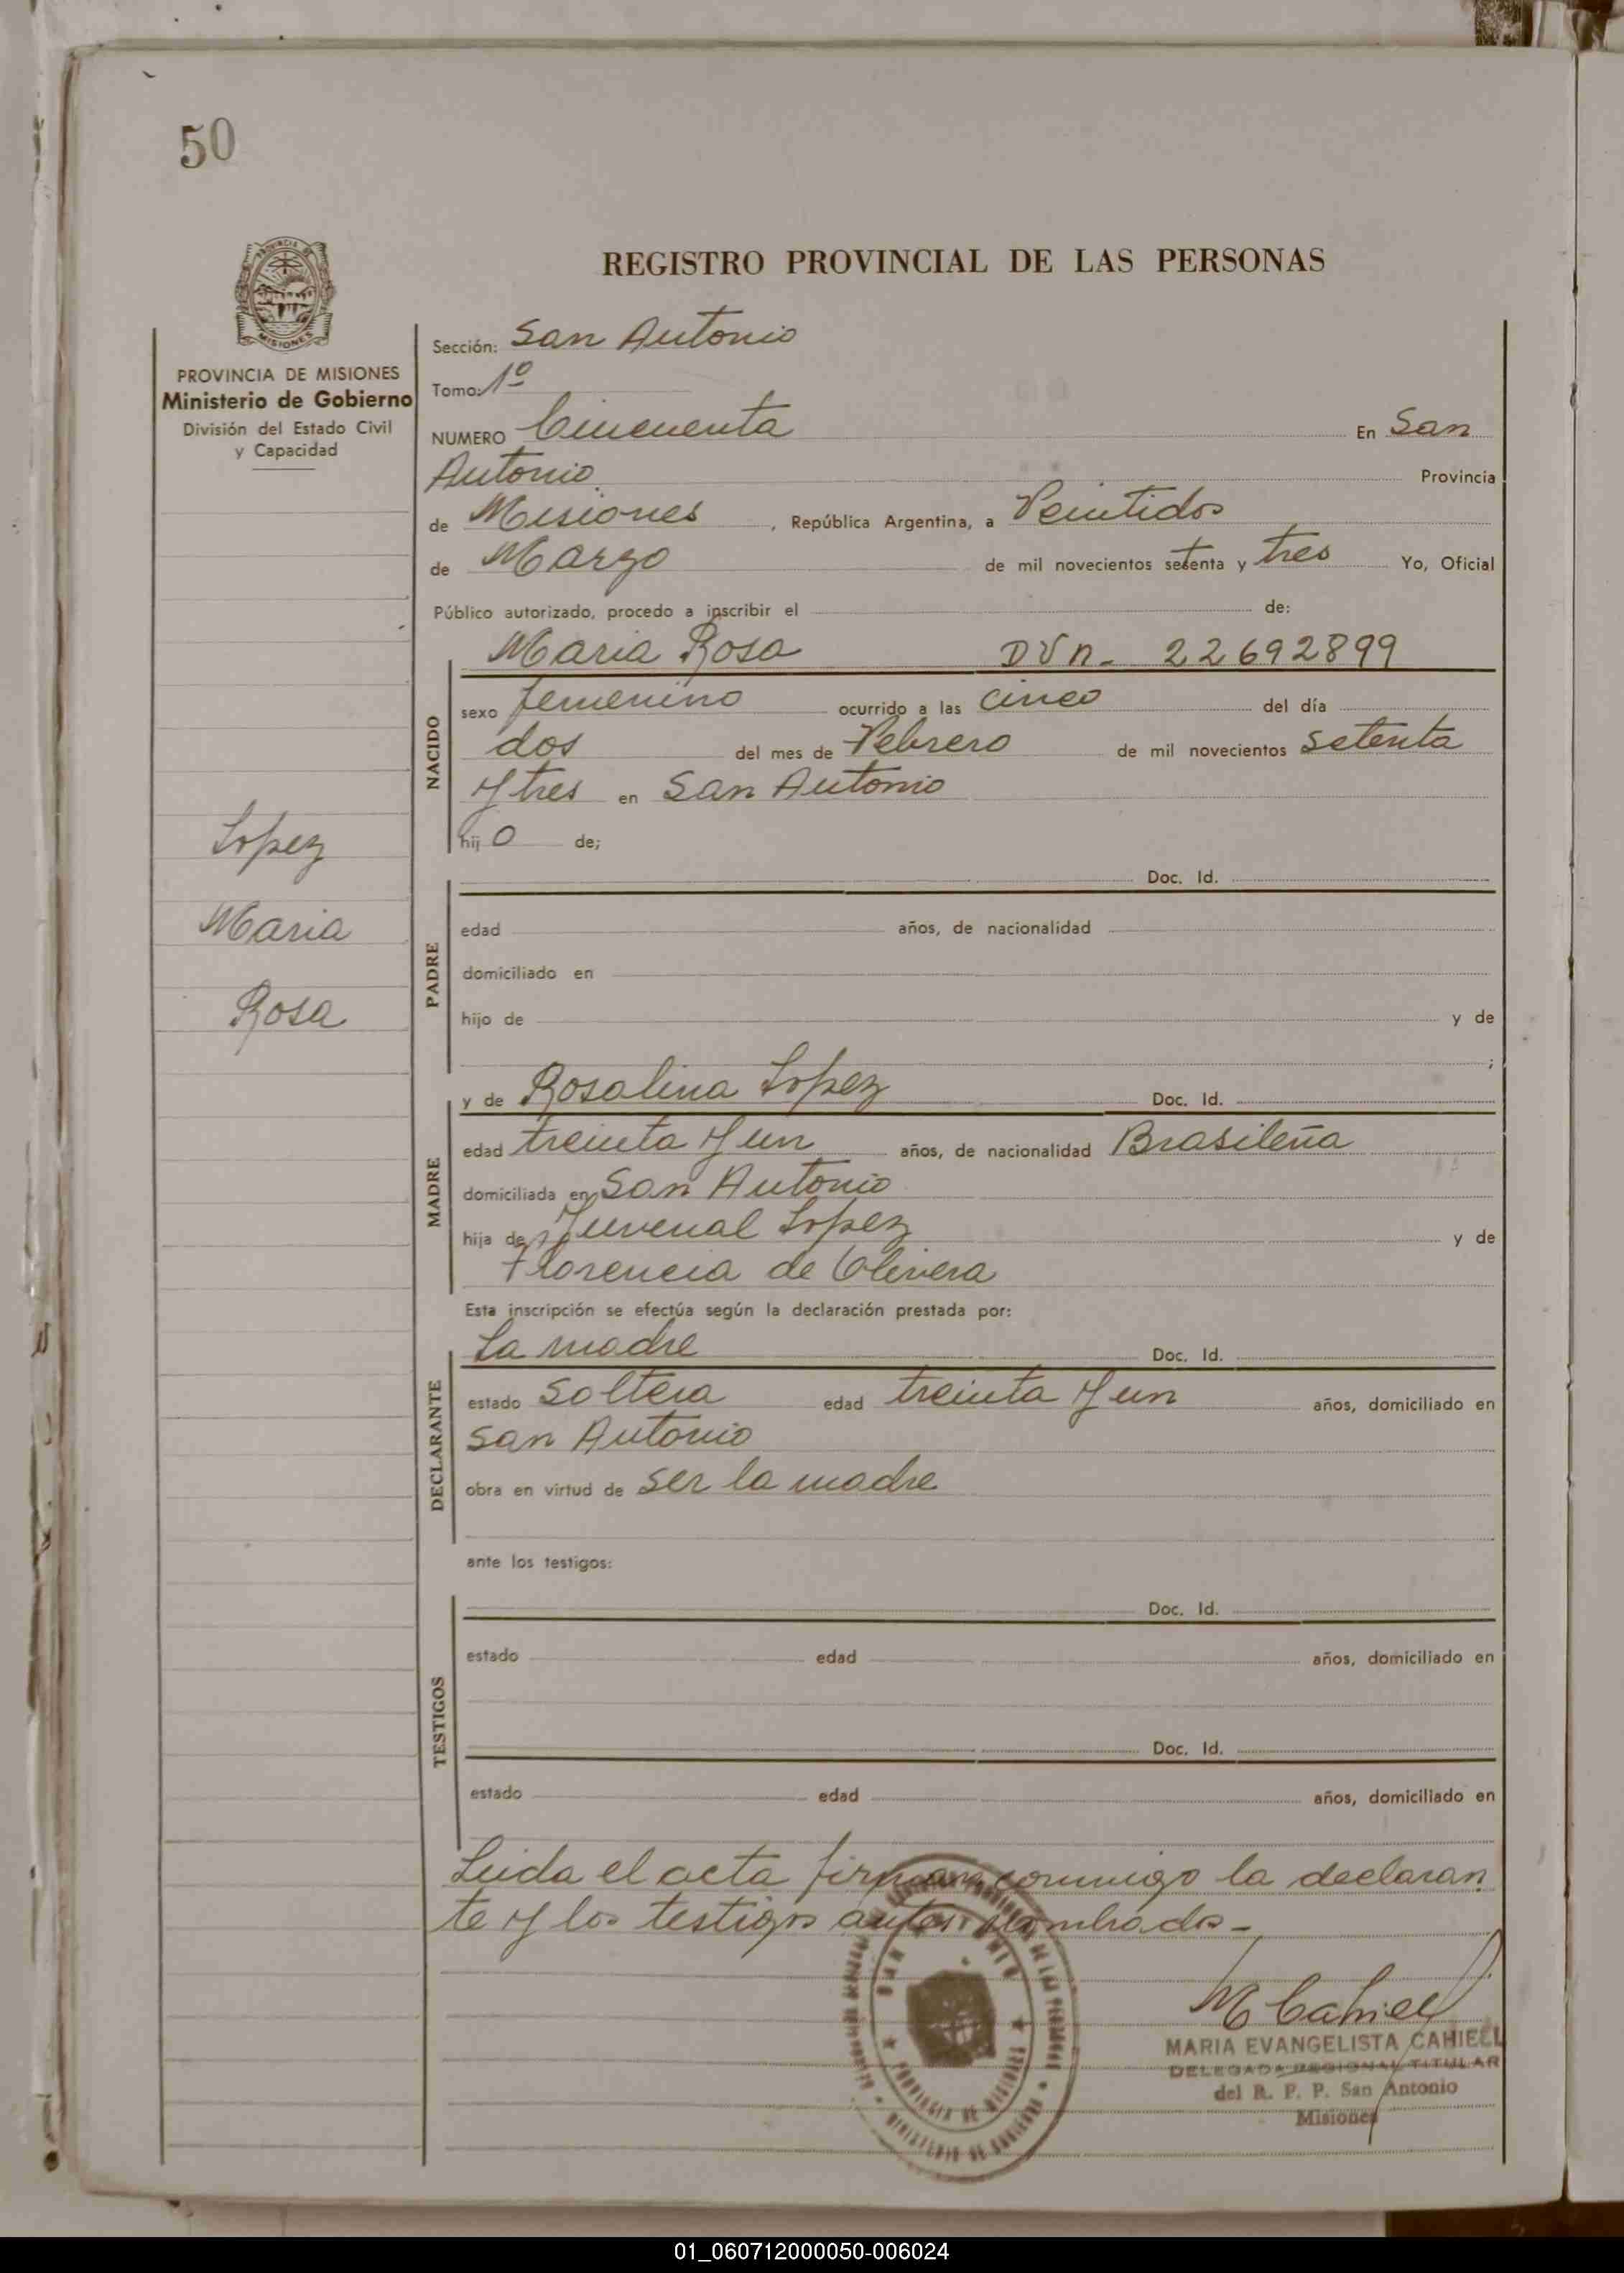 50
PROVINCIA DE
MISIONES
PROVINCIA DE MISIONES
Ministerio de Gobierno
División del Estado Civil
y Capacidad
Lopez
Maria
Rosa
REGISTRO PROVINCIAL DE LAS PERSONAS
Sección: San Antonio
Tomo: 1º
NUMERO Cincuenta En San
Antonio Provincia
de Misiones, República Argentina, a Veintidos
de Marzo de mil novecientos setenta y tres Yo, Oficial
Público autorizado, procedo a inscribir el de:
Maria Rosa DUN. 22692899
NACIDO
sexo femenino ocurrido a las cinco del día
dos del mes de Febrero de mil novecientos setenta
y tres en San Antonio
hij o de;
Doc. Id.
PADRE
edad años, de nacionalidad
domiciliado en
hijo de y de
;
y de Rosalina Lopez Doc. Id.
MADRE
edad treinta y un años, de nacionalidad Brasileña
domiciliada en San Antonio
hija de Juvenal Lopez y de
Florencia de Olivera
Esta inscripción se efectúa según la declaración prestada por:
La madre Doc. Id.
DECLARANTE
estado soltera edad treinta y un años, domiciliado en
San Antonio
obra en virtud de ser la madre
ante los testigos:
Doc. Id.
TESTIGOS
estado edad años, domiciliado en
Doc. Id.
estado edad años, domiciliado en
Leida el acta firman conmigo la declaran
te y los testigos antes nombrados -
SAN ANTONIO
PROVINCIA DE MISIONES
MINISTERIO DE GOBIERNO
M Cahiel
MARIA EVANGELISTA CAHIELL
DELEGADA REGIONAL TITULAR
del R. P. P. San Antonio
Misiones
01_060712000050-006024